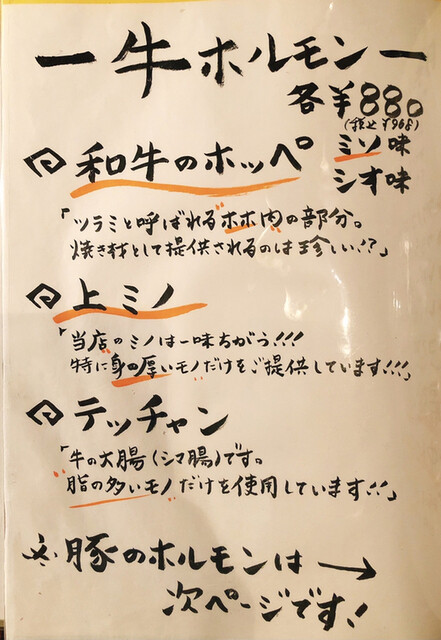 ー牛ホルモンー
各¥880
(税込¥968)
和牛のホッペ
ミソ味
シオ味
「ツラミと呼ばれるホホ肉の部分。
焼き材として提供されるのは珍しい!?」
上ミノ
「当店のミノは一味ちがう!!!
特に身の厚いモノだけをご提供しています!!!」
テッチャン
「牛の大腸(シマ腸)です。
脂の多いモノだけを使用しています!!」
※豚のホルモンは→
次ページです!